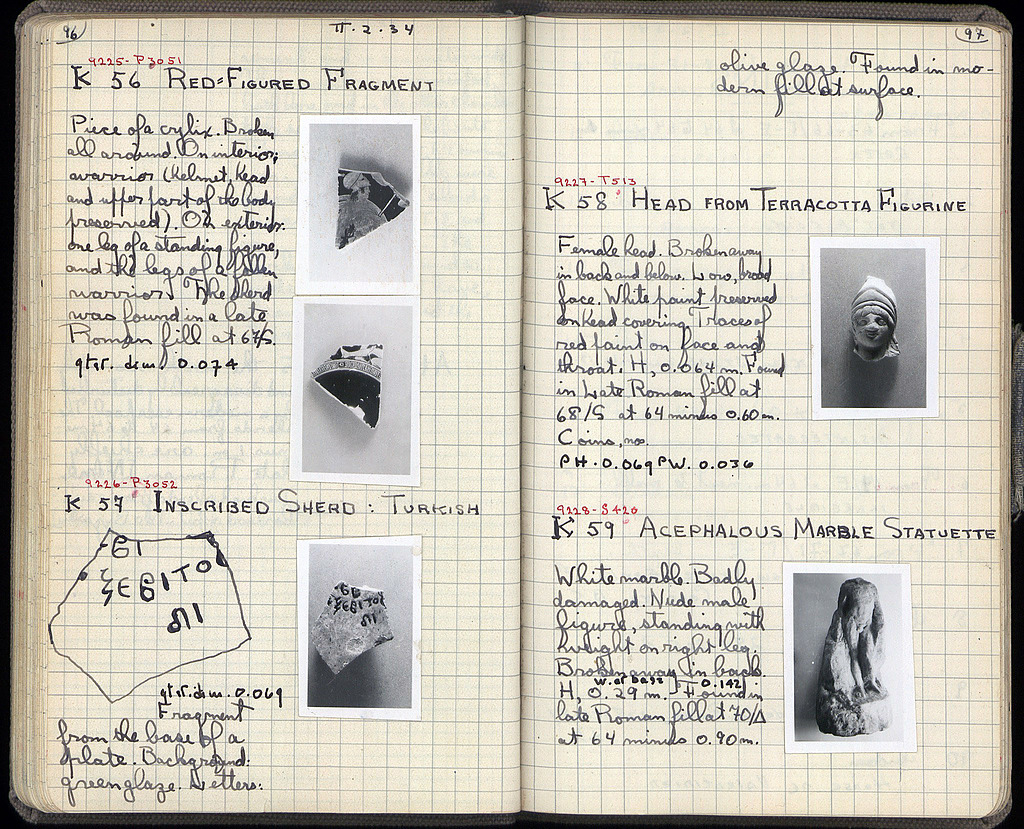 96
II.2.34
9225-P3051
K 56 RED-FIGURED FRAGMENT
Piece of a cylix. Broken
all around. On interior;
warrior (helmet, head
and upper part of the body
preserved). On exterior:
one leg of a standing figure,
and the legs of a fallen
warrior. The sherd
was found in a late
Roman fill at 67/S.
gtst. dim. 0.074
9226-P3052
K 57 INSCRIBED SHERD : TURKISH
gtst. dim. 0.069
Fragment
from the base of a
plate. Background:
green glaze. Letters:
97
olive glaze. Found in mo-
dern fill at surface.
9227-T513
K 58 HEAD FROM TERRACOTTA FIGURINE
Female head. Broken away
in back and below. Low, broad
face. White paint preserved
on head covering. Traces of
red paint on face and
throat. H, 0.064 m. Found
in Late Roman fill at
68/S at 64 minus 0.60 m.
Coins, no.
PH. 0.069 PW. 0.036
9228-S420
K 59 ACEPHALOUS MARBLE STATUETTE
White marble. Badly
damaged. Nude male
figure, standing with
weight on right leg.
Broken away in back.
W. at base 0.142
H, 0.29 m. Found in
late Roman fill at 70/Δ
at 64 minus 0.90 m.